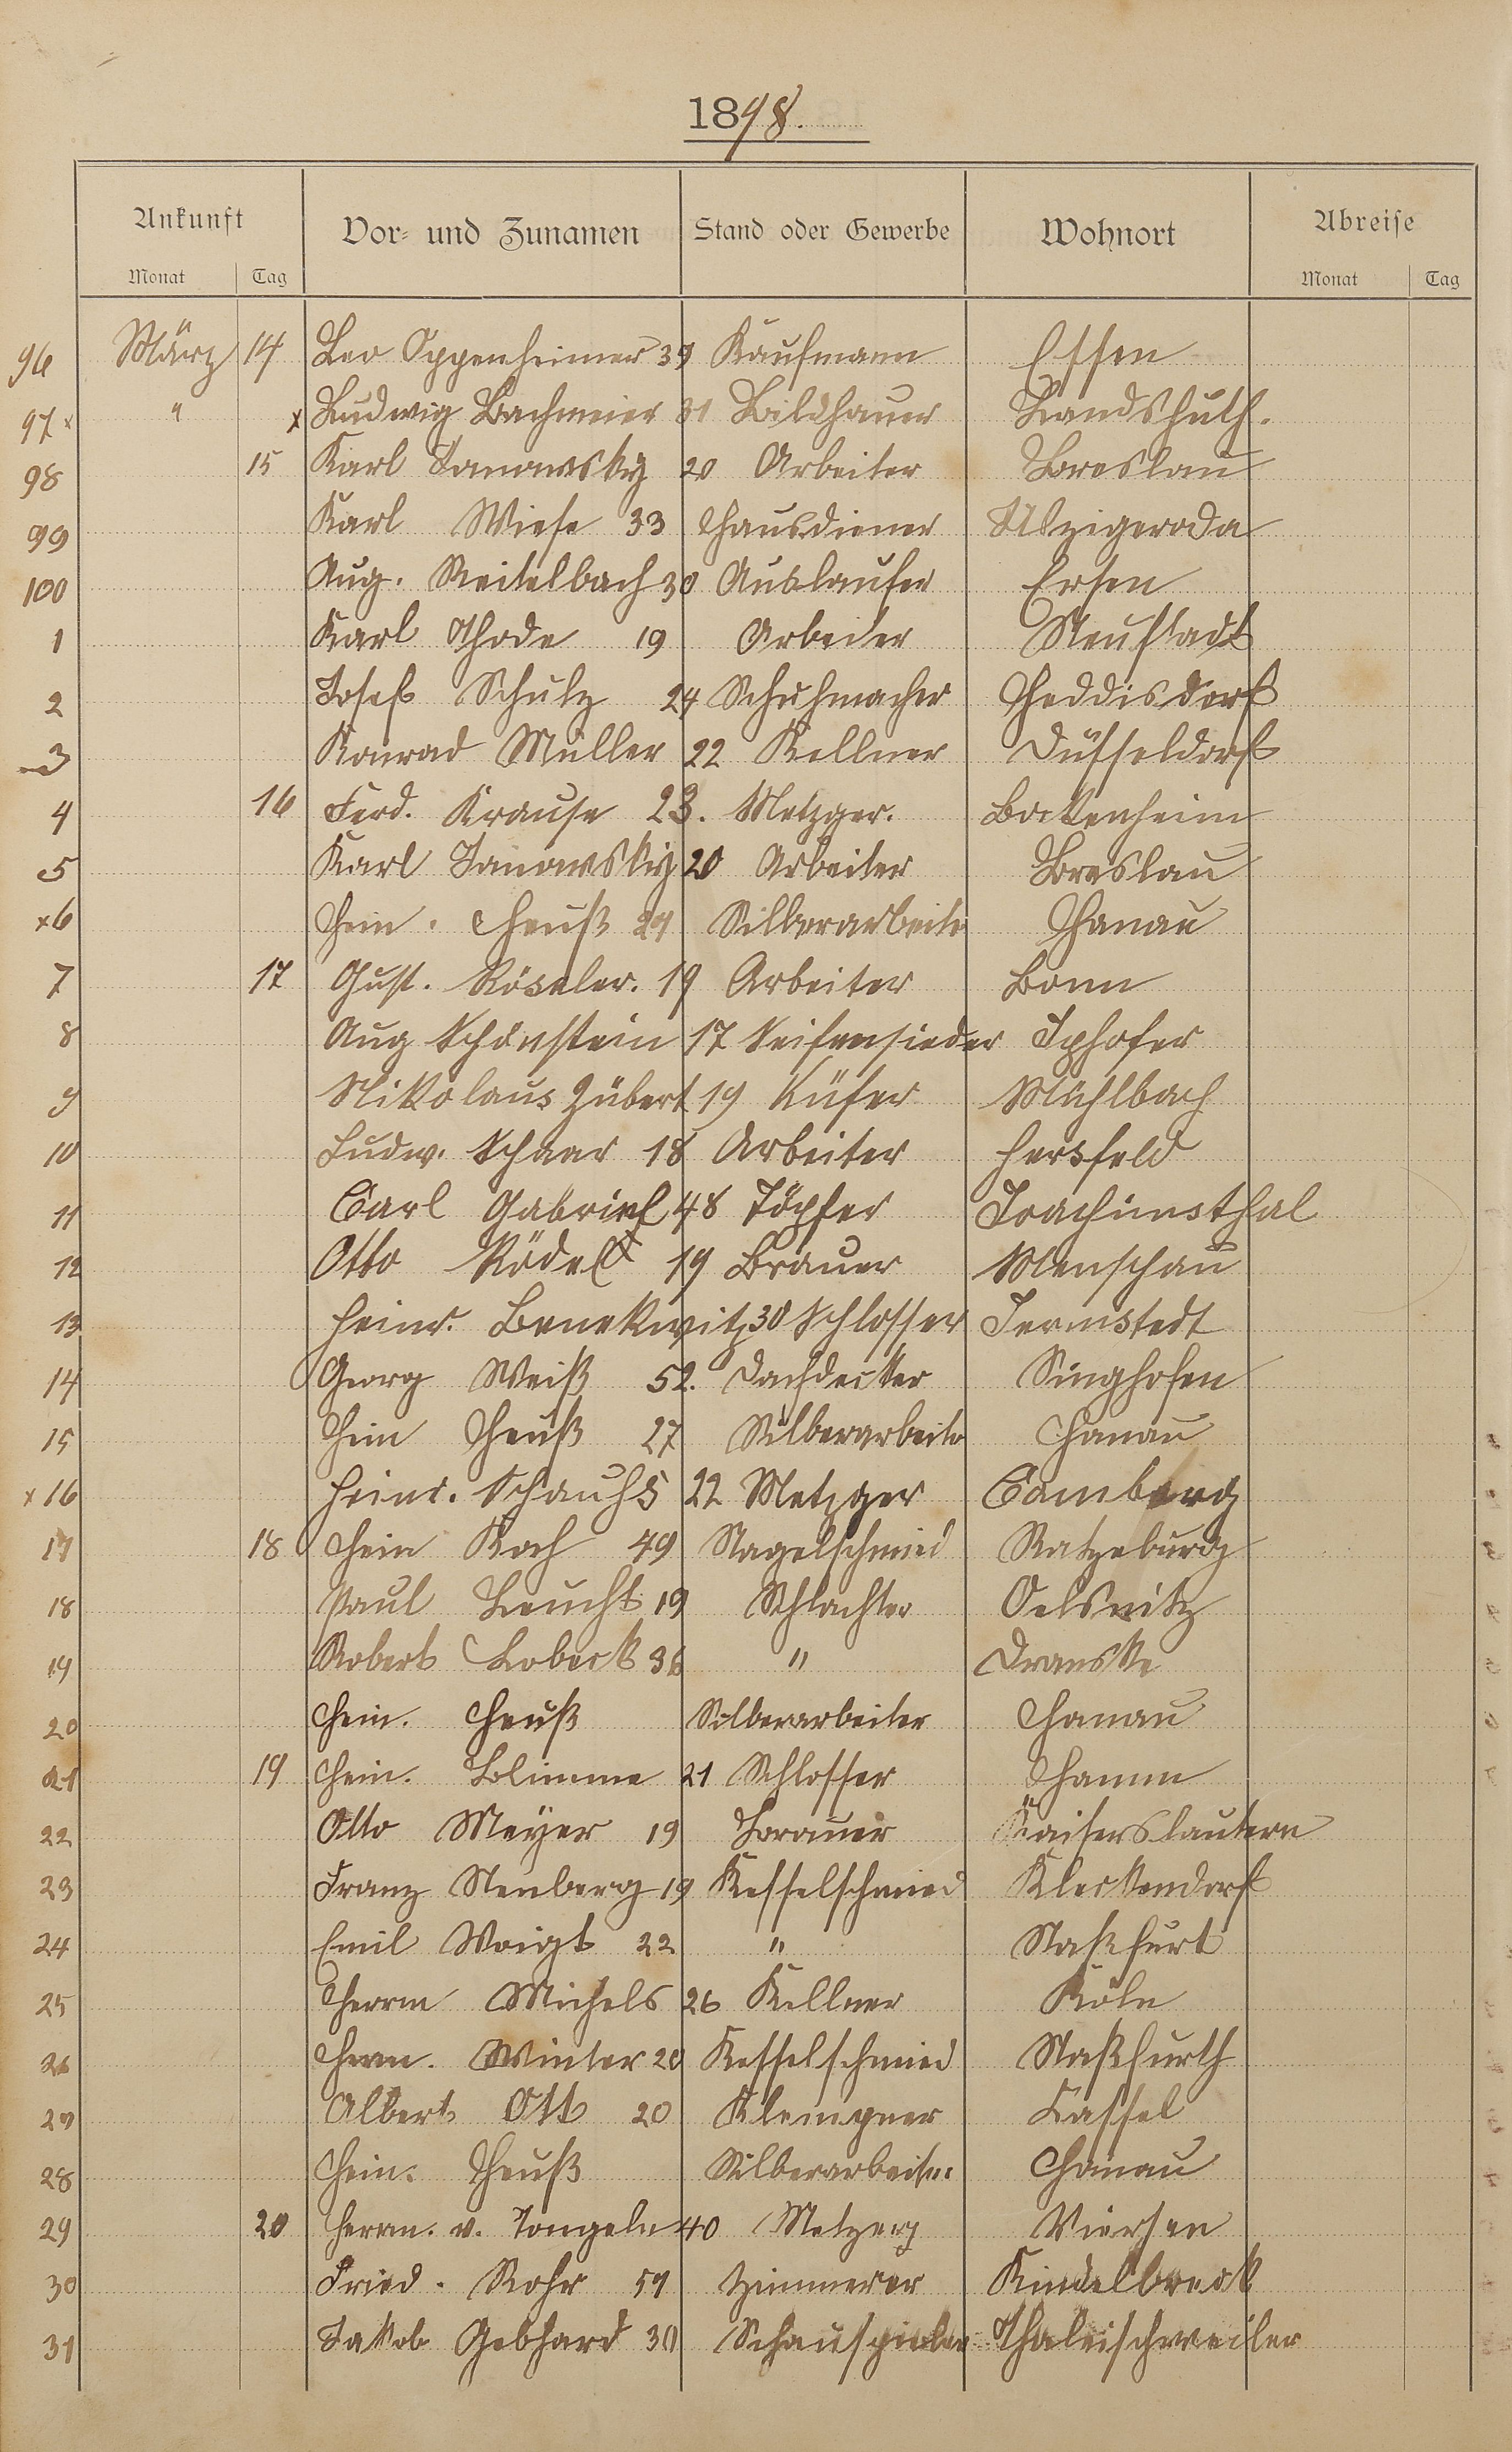 1898.
Ankunft Vor- und Zunamen Stand oder Gewerbe Wohnort Abreise
Monat Tag Monat Tag
96 März 14 Leo Oppenheimer 39 Kaufmann Essen
97 x " x Ludwig Bachmeier 31 Bildhauer Landshuth.
98 15 Karl Janowsky 20 Arbeiter Breslau
99 Karl Wiese 33 Hausdiener
100 Aug. Reitelbach 30 Auslaufer
1 Karl Thode 19 Arbeider Neustadt
2 Josef Schulz 24 Schuhmacher Heddisdorf
3 Konrad Müller 22 Kellner Düsseldorf
4 16 Ferd. Krause 23. Metzger. Bockenheim
5 Karl Janowsky 20 Arbeiter Breslau
x6 Hein. Heuß 27 Silberarbeite Hanau
7 17 Gust. Rössler. 19 Arbeiter Bonn
8 Aug Schönstein 17 Seifensieder Iphofer
9 Nikolaus Zübert 19 Küfer Mühlbach
10 Ludw. Schaar 18 Arbeiter Hersfeld
11 Carl Gabriel 48 Töpfer Joachimsthal
12 Otto Rödel 19 Brauer Menschau
13 Heinr. Benekwitz 30 Schlosser Jermstedt
14 Georg Weiß 52. Dachdecker Singhofen
15 Hein Heuß 27 Silberarbeite Hanau
x 16 Heinr. Schauhs 22 Metzger Camberg
17 18 Hein Koch 49 Nagelschmied Ratzeburg
18 Paul Leucht 19 Schlachter Oelsnitz
19 Robert Lobeck 36 " Dranske
20 Hein. Heuß Silberarbeiter Hanau
21 19 Hein. Blimme 21 Schlosser Hamm
22 Otto Meyer 19 Brauer Kaiserslautern
23 Franz Stenberg 19 Kesselschmied Kleckendorf
24 Emil Voigt 22 " Staßfurt
25 Herrm Michels 26 Kellner Köln
26 Herm. Winter 20 Kesselschmied Staßfurth
27 Albert Ott 20 Klempner Kassel
28 Hein. Heuß Silberarbeiter Hanau
29 20 Herm. v. Tongeln 40 Metzerg Viersen
30 Fried. Rohr 57 Zimmerer Kindelbreck
31 Jakob Gebhard 30 Schauspieler Thaleischweiler